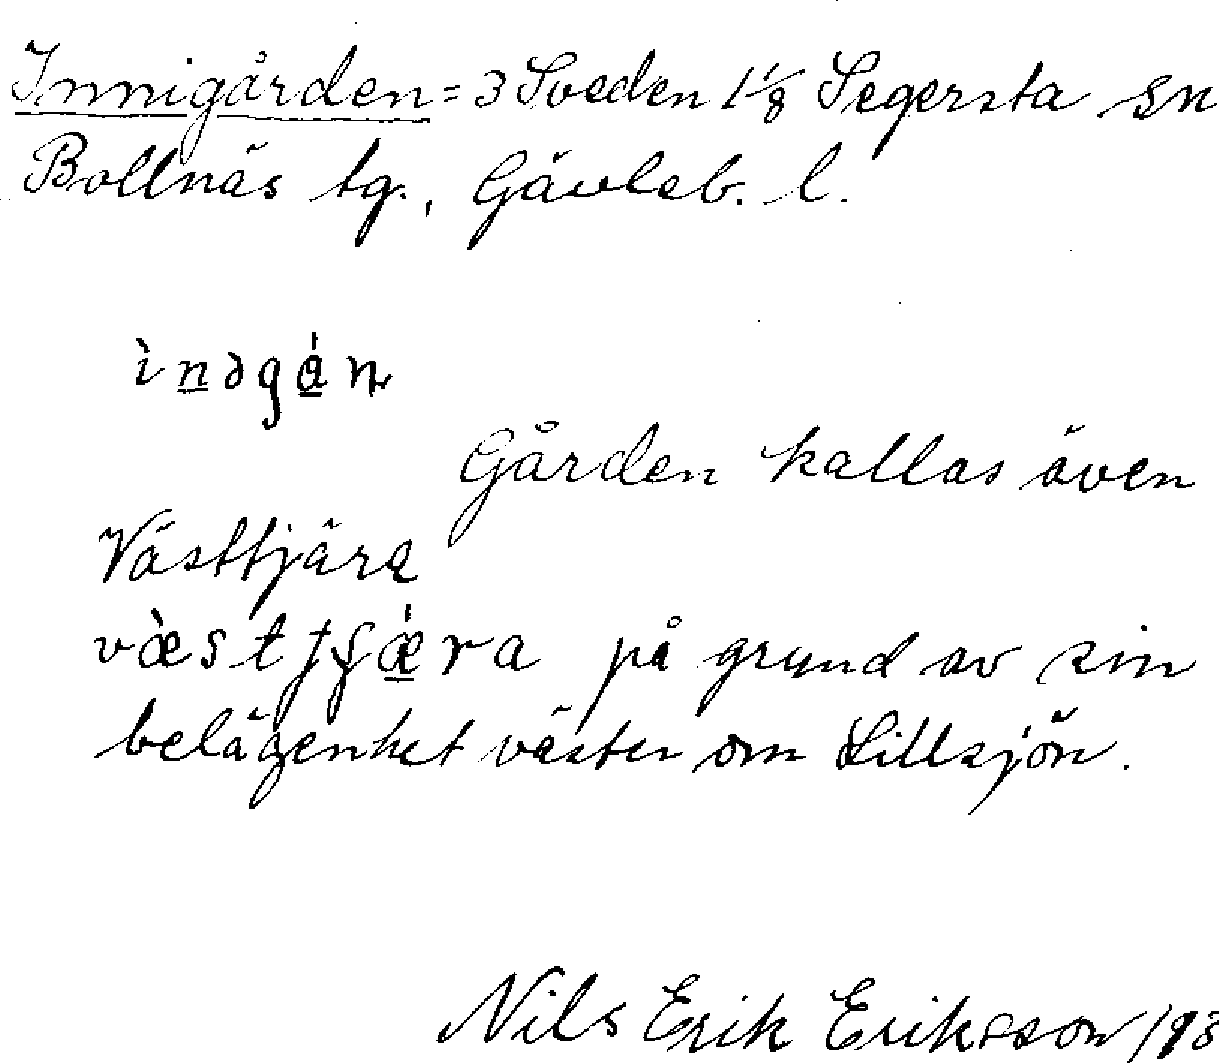 Innigården = 3 Sveden 1 1/8 Segersta sn
Bollnäs tg., Gävleb. l.
ìnəgán
Gården kallas även
Västtjära
væ̀stjʃǽra på grund av sin
belägenhet väster om Lillsjön.
Nils Erik Eriksson 193